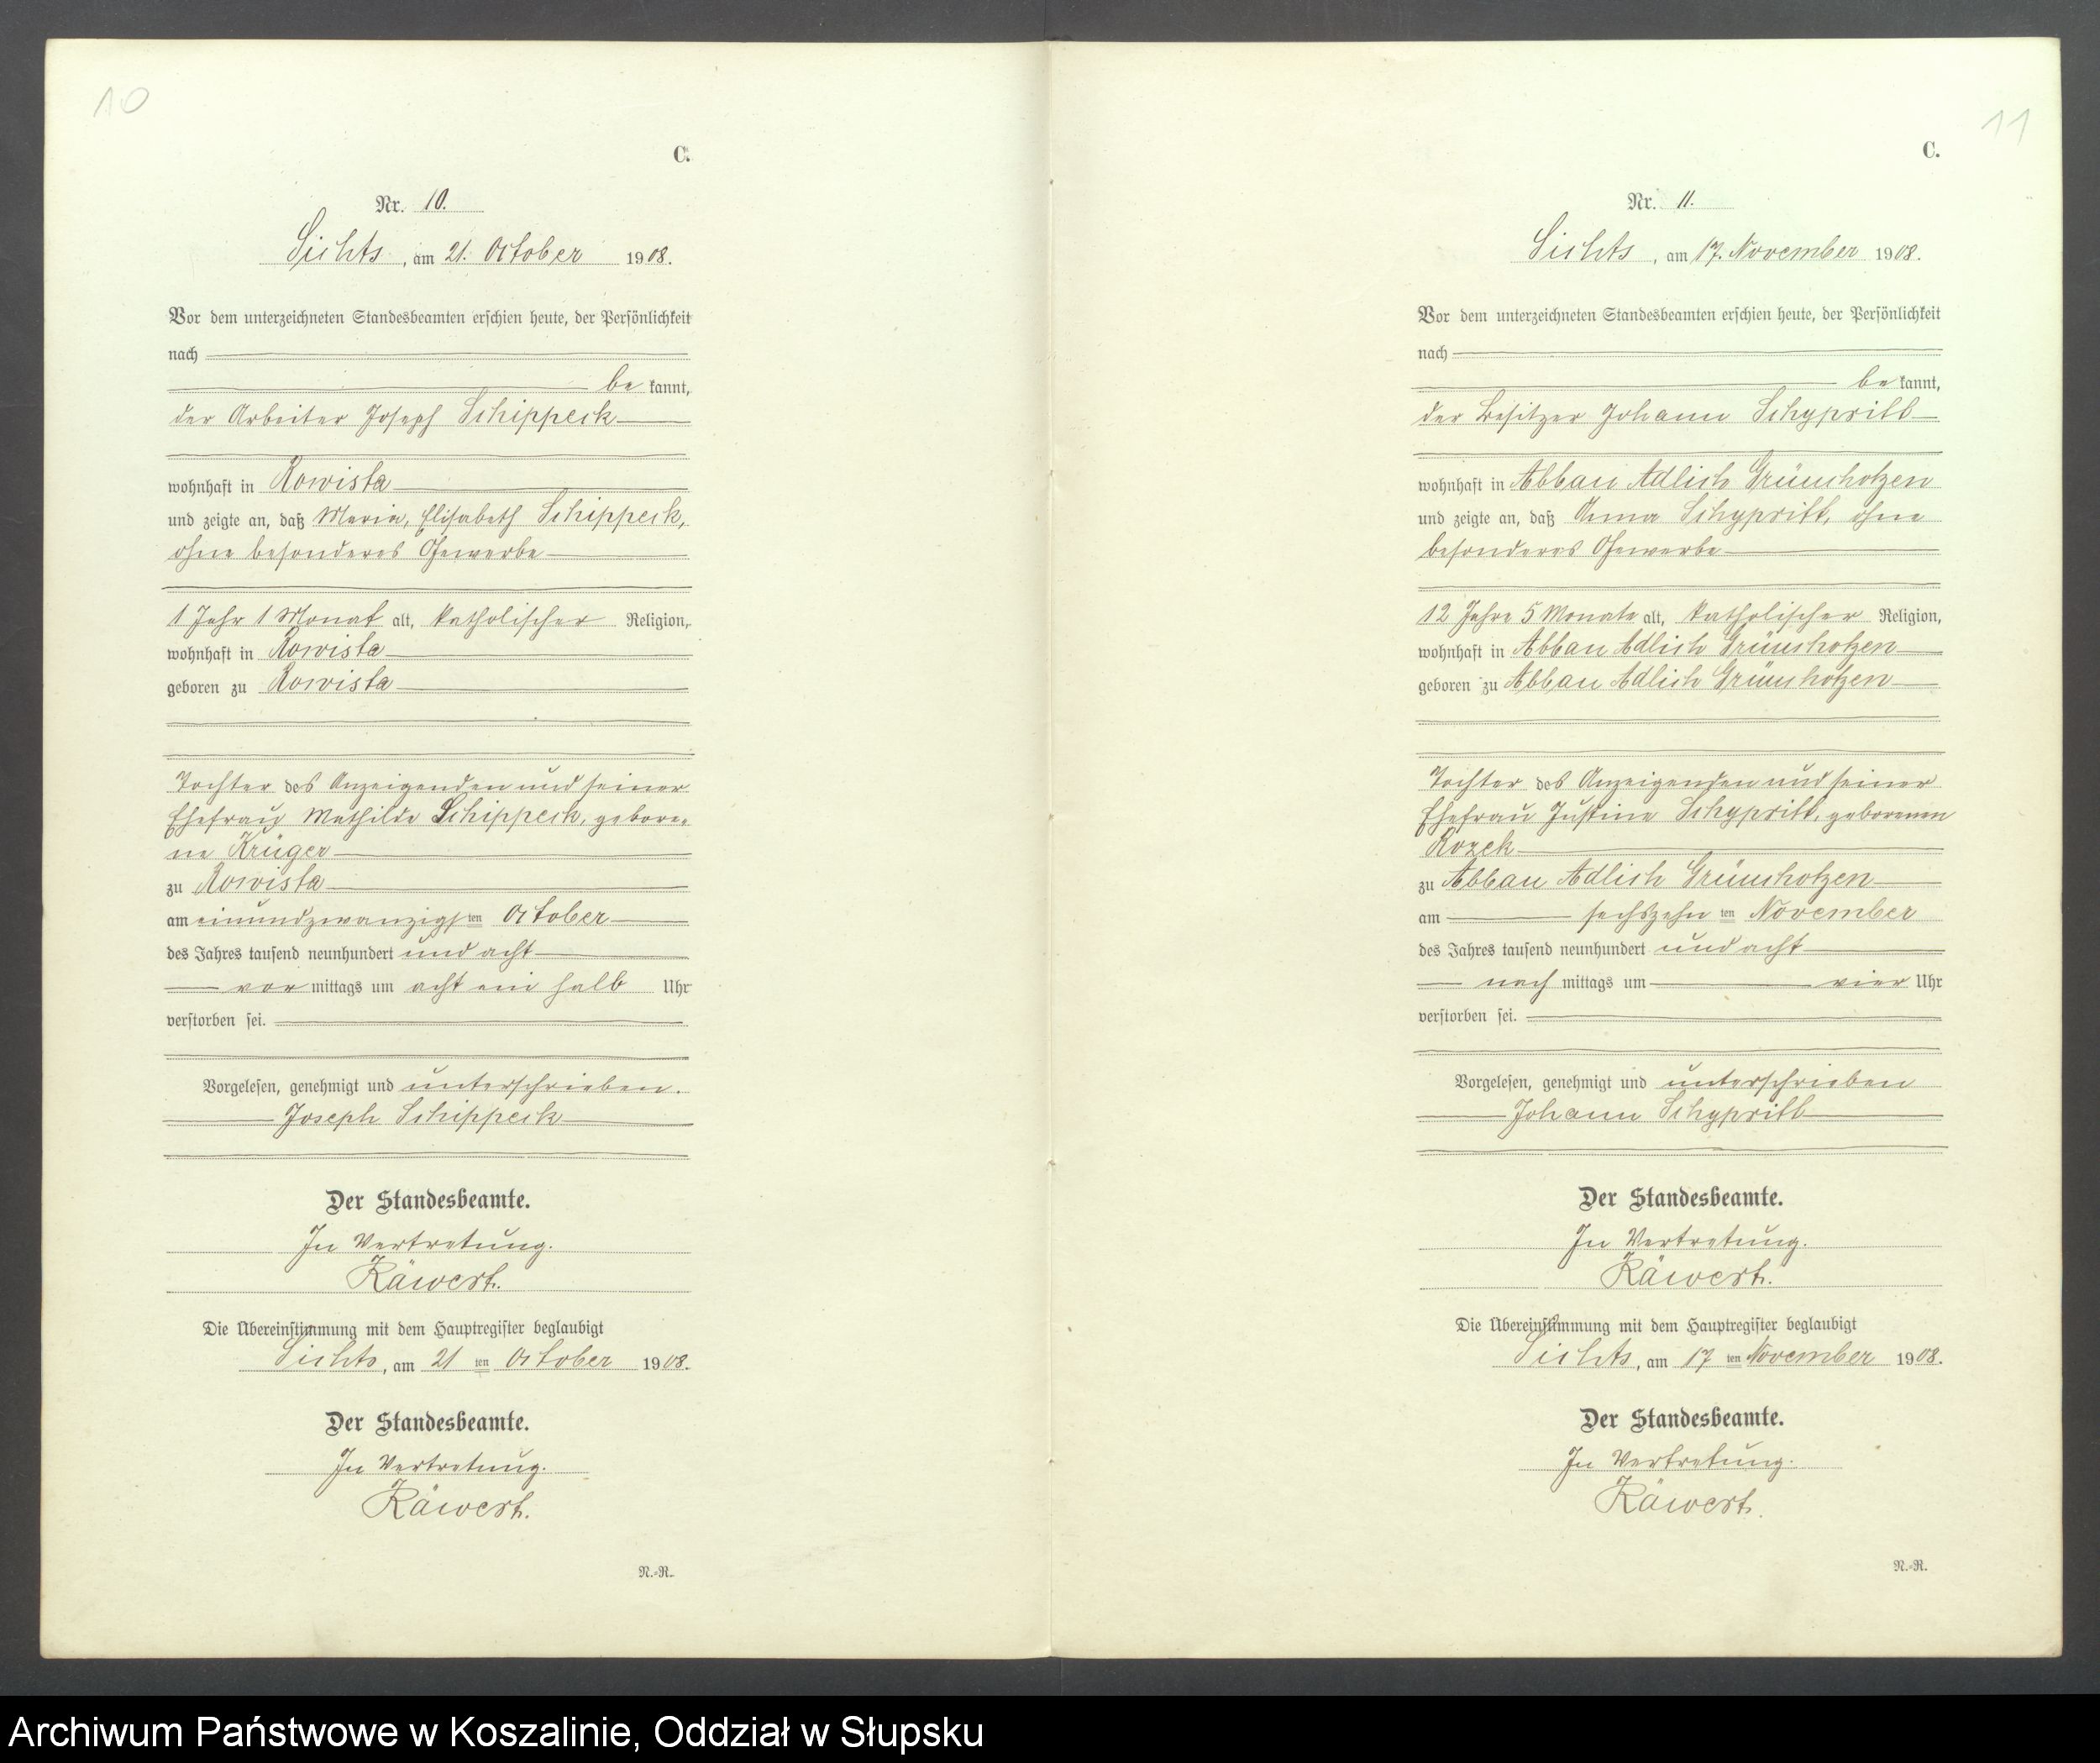 10
C.
Nr. 10.
Sichts, am 21. October 1908.
Vor dem unterzeichneten Standesbeamten erschien heute, der Persönlichkeit
nach
be kannt,
der Arbeiter Joseph Schippeck
wohnhaft in Kowista
und zeigte an, daß Maria, Elisabeth Schippeck,
ohne besonderes Gewerbe
1 Jahr 1 Monat alt, katholischer Religion,
wohnhaft in Kowista
geboren zu Kowista
Tochter des Anzeigenden und seiner
Ehefrau Mathilde Schippeck, gebore-
ne Krüger
zu Kowista
am einundzwanzigsten October
des Jahres tausend neunhundert und acht
vor mittags um acht ein halb Uhr
verstorben sei.
Vorgelesen, genehmigt und unterschrieben.
Joseph Schippeck
Der Standesbeamte.
In Vertretung.
Räwert.
Die Übereinstimmung mit dem Hauptregister beglaubigt
Sichts, am 21 ten October 1908.
Der Standesbeamte.
In Vertretung.
Räwert.
N.-R.
11
C.
Nr. 11.
Sichts, am 17. November 1908.
Vor dem unterzeichneten Standesbeamten erschien heute, der Persönlichkeit
nach
be kannt,
der Besitzer Johann Schypritt
wohnhaft in Abbau Adlich Grünshotzen
und zeigte an, daß Anna Schypritt, ohne
besonderes Gewerbe
12 Jahre 5 Monate alt, katholischer Religion,
wohnhaft in Abbau Adlich Grünshotzen
geboren zu Abbau Adlich Grünshotzen
Tochter des Anzeigenden und seiner
Ehefrau Justine Schypritt, geborenen
Rozek
zu Abbau Adlich Grünshotzen
am sechszehn ten November
des Jahres tausend neunhundert und acht
nach mittags um vier Uhr
verstorben sei.
Vorgelesen, genehmigt und unterschrieben
Johann Schypritt
Der Standesbeamte.
In Vertretung.
Räwert.
Die Übereinstimmung mit dem Hauptregister beglaubigt
Sichts, am 17 ten November 1908.
Der Standesbeamte.
In Vertretung.
Räwert.
N.-R.
Archiwum Państwowe w Koszalinie, Oddział w Słupsku